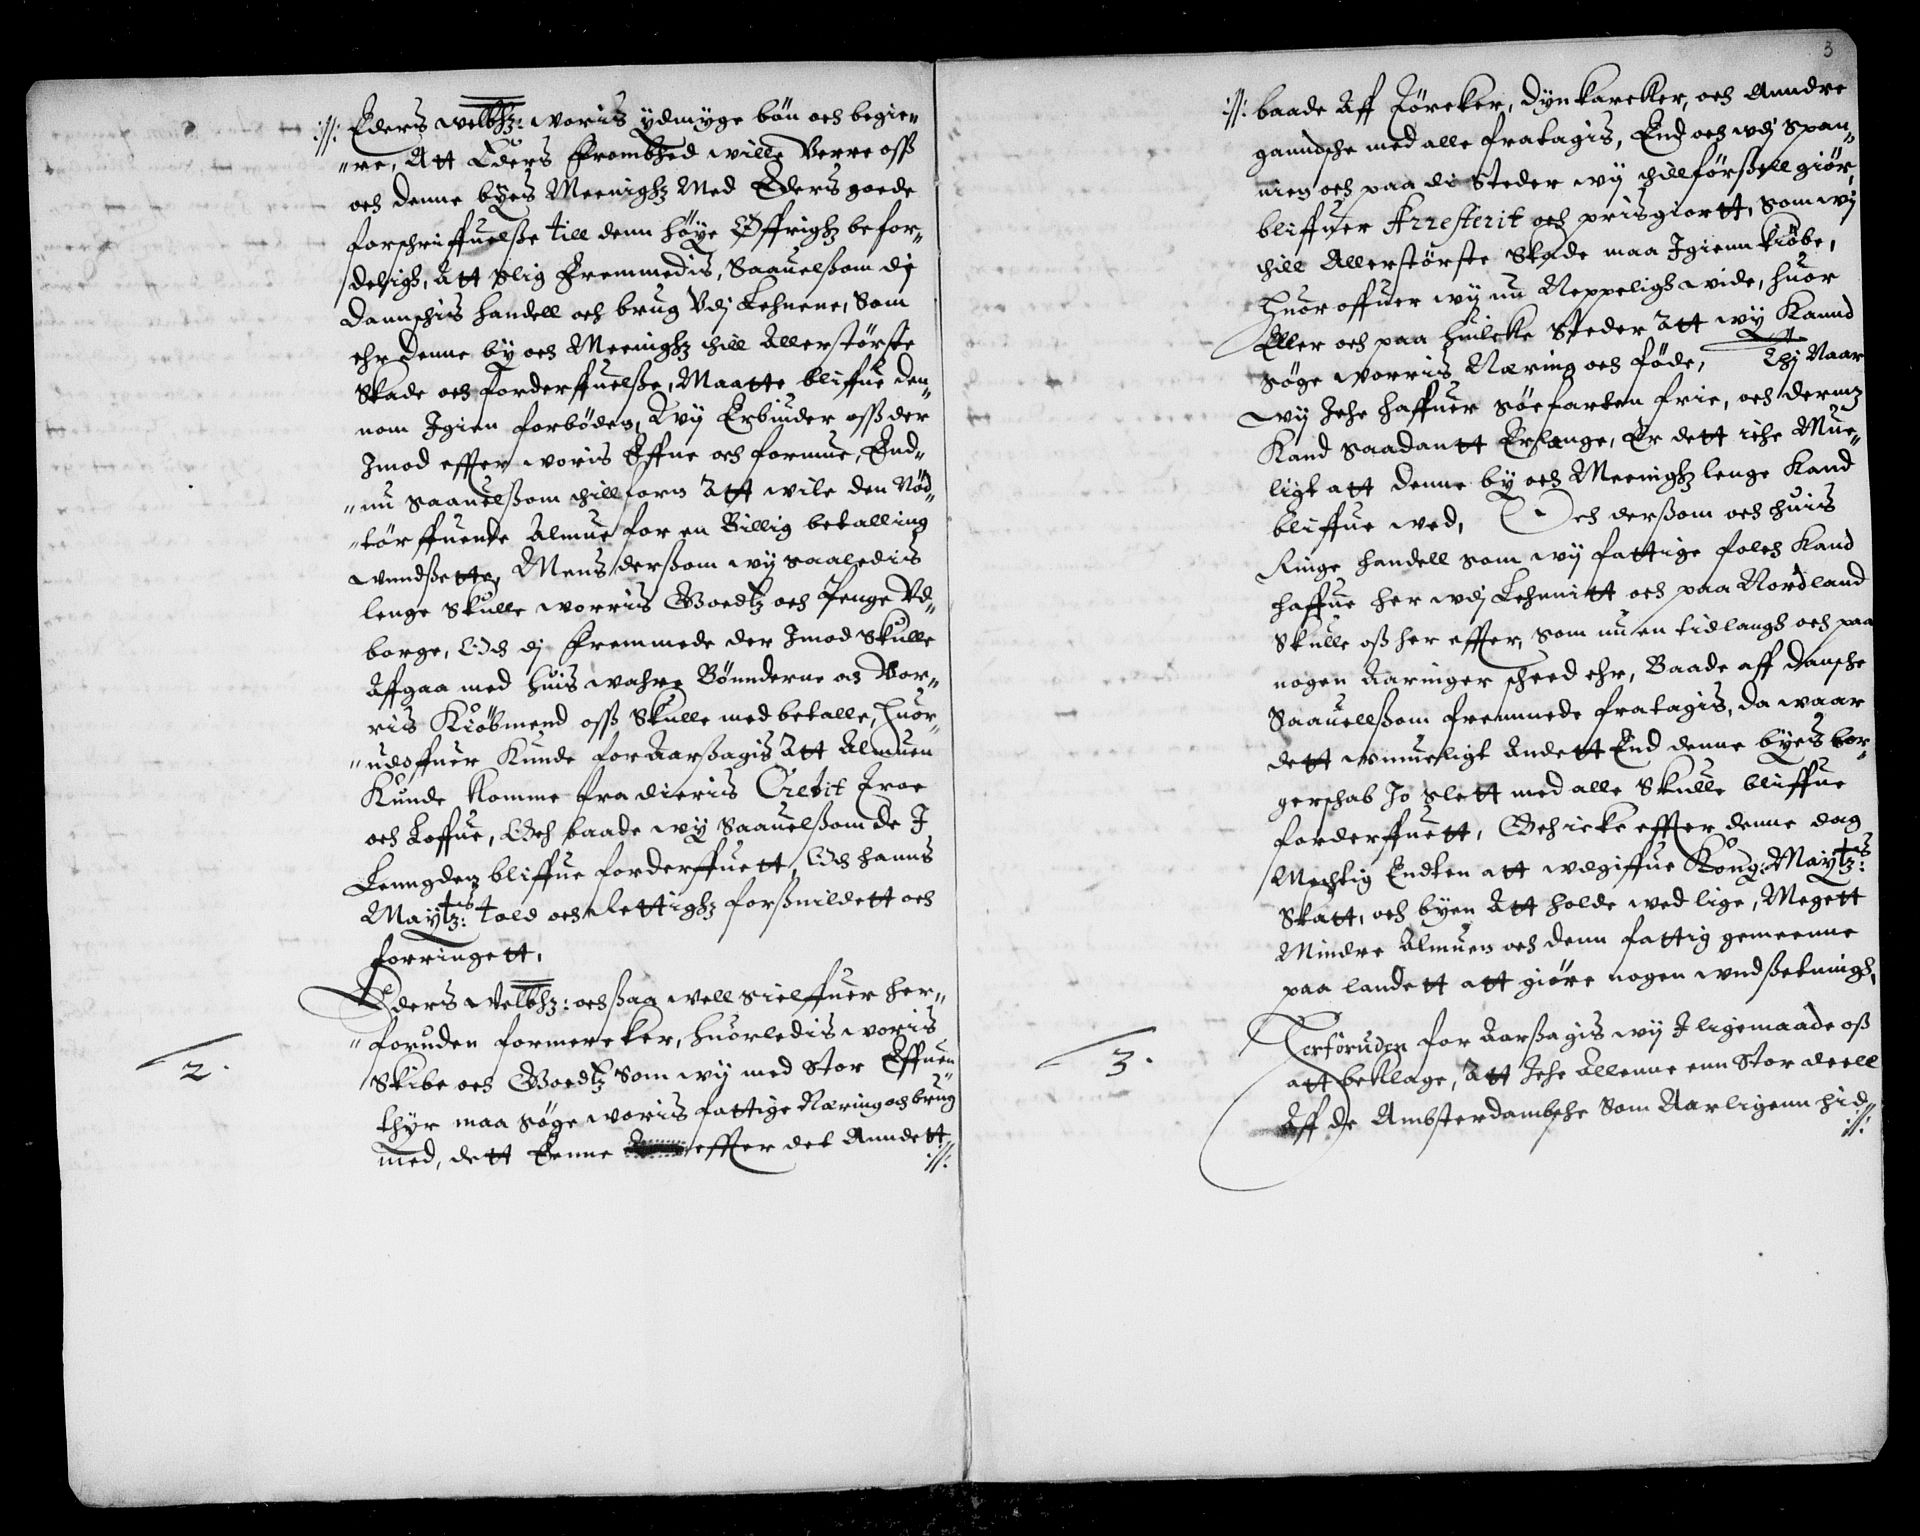 :/: Eders Welbhz: woris ydmyge bön och begie„
„re, Att Eders Frombhed wille Verre oss
och denne byes Meenighz Med Eders goede
forschriffuelße till denn höye Øffrighz befor„
deligh, Att slig Fremmedis, Saauelßom di
Dannschis handell och brug Vdj Lehnene, Som
ehr denne by och Meenighz thill Allerstörste
Skade och forderffuelße, Maatte bliffue den„
nom Igien forböden, Wij Erbinder oss der
Imod effter woris Effne och formue, End„
„nu Saauelßom thillforn Att wile den Nöd„
„törffuende Almue for en Billig betalling
wundßette, Mens derßom wij saaledis
lenge Skulle worris Goedtz och Penge Vd„
borge, Och dj Fremmede der Imod Skulle
Affgaa med huis wahre Bönnderne och Vor„
ris Kiöbmend oss Skulle med betalle, Huor„
„udoffuer Kunde foraarßagis Att Almuen
Kunde Komme fra dieris Credit Troe
och Loffue, Och baade wij Saauelßom de I
Lenngden bliffue forderffuett, Och hanns
Maytz:ts told och Rettighz forßnildett och
forringett,
Eders Velbhz: och ßaa well Sielffuer her„
2. „foruden formercker, huorledis woris
Skibe och Goedtz Som wij med Stor Effuen„
thyr maa Søge woris fattige Næring och brug
med, dett Eenne effter det Anndett :/:
3
:/: baade Aff Töreker, Dynkareker, och Anndre
ganndsche med alle fratagis, End och udj Span„
nien och paa di Steder wij thilförßell giör,
bliffuer Arresterit och prisgiortt, Som wij
thill Allerstörste Skade maa Igienn kiöbe,
Huoroffuer wij nu Neppeligh wide, huor
Eller och paa huilcke Steder Att wij Kannd
Søge worris Næring och föde, Thj Naar
wij Iche haffuer Söefarten frie, och dermz
Kand Saadantt Erlange, Er dett iche Mue„
ligt att denne by och Meenighz lenge Kand
bliffue wed, Och derßom och huis
Ringe handell Som wij fattige folch Kand
haffue her udj Lehnitt och paa Nordland
Skulle oß her effter, Som nu en tidlangh och paa
nogen Aaringer scheed ehr, Baade aff Dansche
Saauellßom fremmede fratagis, da waar
dett wmueligt Andett End denne byes bor„
gerschab Jo slett med alle Skulle bliffue
forderffuett, Och icke effter denne dag
Mechtig Endten att udgiffue Kong: Maytz:ts
Skatt, och byen Att holde wed lige, Megett
Mindre Almuen och denn fattig gemeenne
paa landett att giöre nogen wndßetningh,
3. Herforuden foraarßagis wij I ligemaade oß
att beklage, Att Iche Allenne enn Stor deell
Aff de Ambsterdambsche Som Aarligenn hid :/: